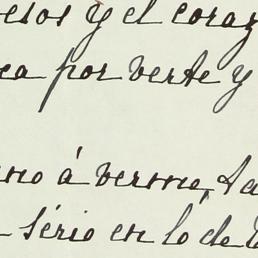 esos y el coraz
ca por verte y
no á verme, ta
sério en lo de